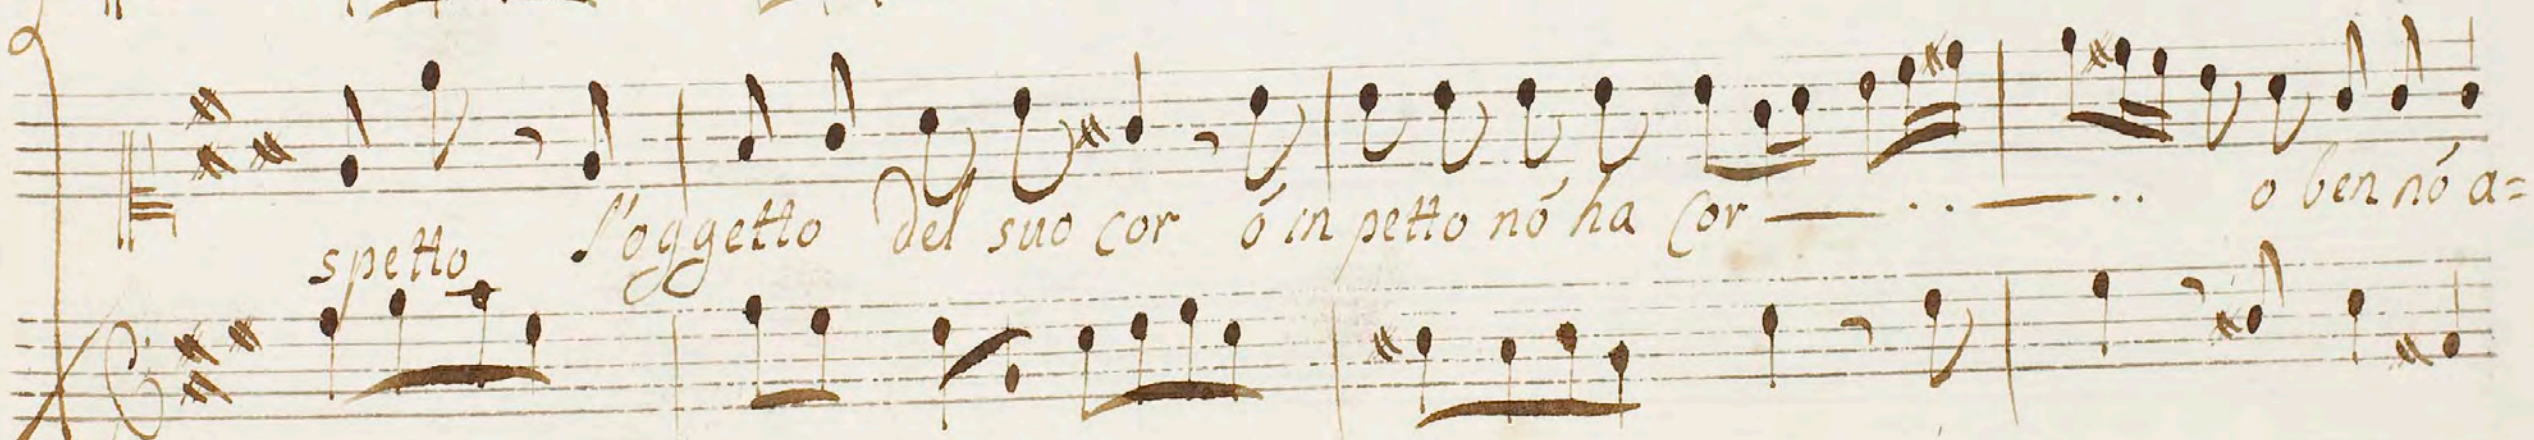 spetto l'oggetto del suo cor ó in petto nó ha Cor — .. — .. o ben nó a=